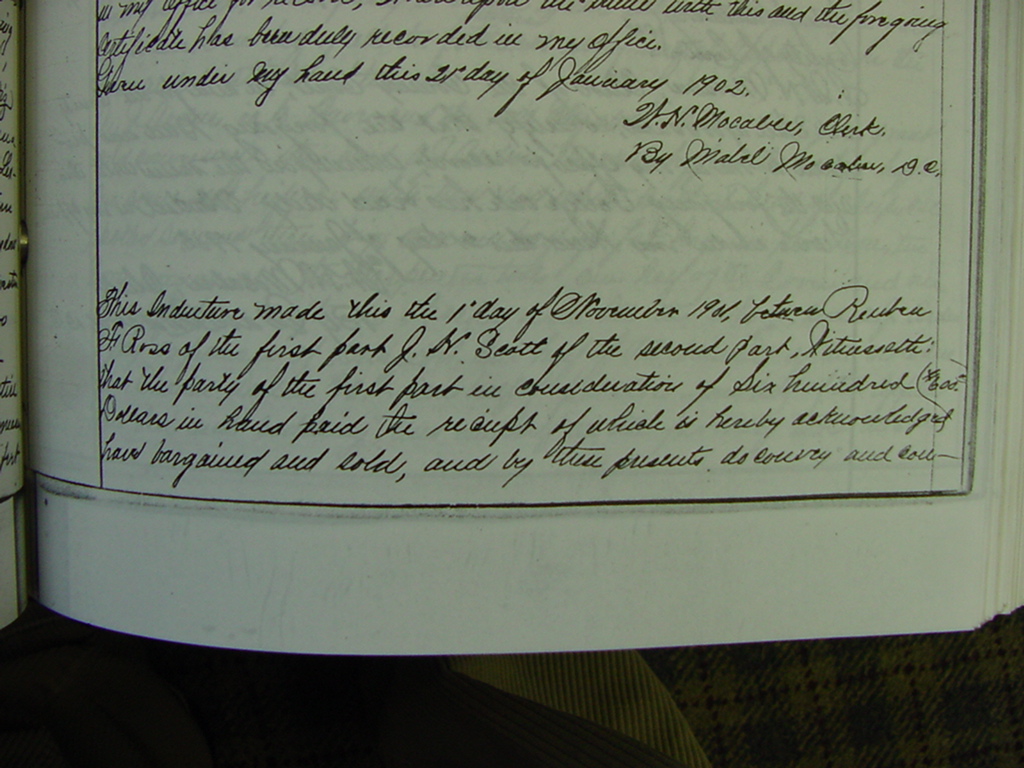 in my office for record, Whereupon the same with this and the foregoing
Certificate has been duly recorded in my office.
Given under my hand this 21st day of January 1902.
W.N. Mocabee, Clerk.
By Mabel Mocabee, D.C.
This Indenture made this the 1st day of November 1901, between Reuben
F Ross of the first part J. N. Scott of the second part, Witnesseth:
that the party of the first part in consideration of Six hundred ($600.
Dollars in hand paid the receipt of which is hereby acknowledged
have bargained and sold, and by these presents do convey and con-